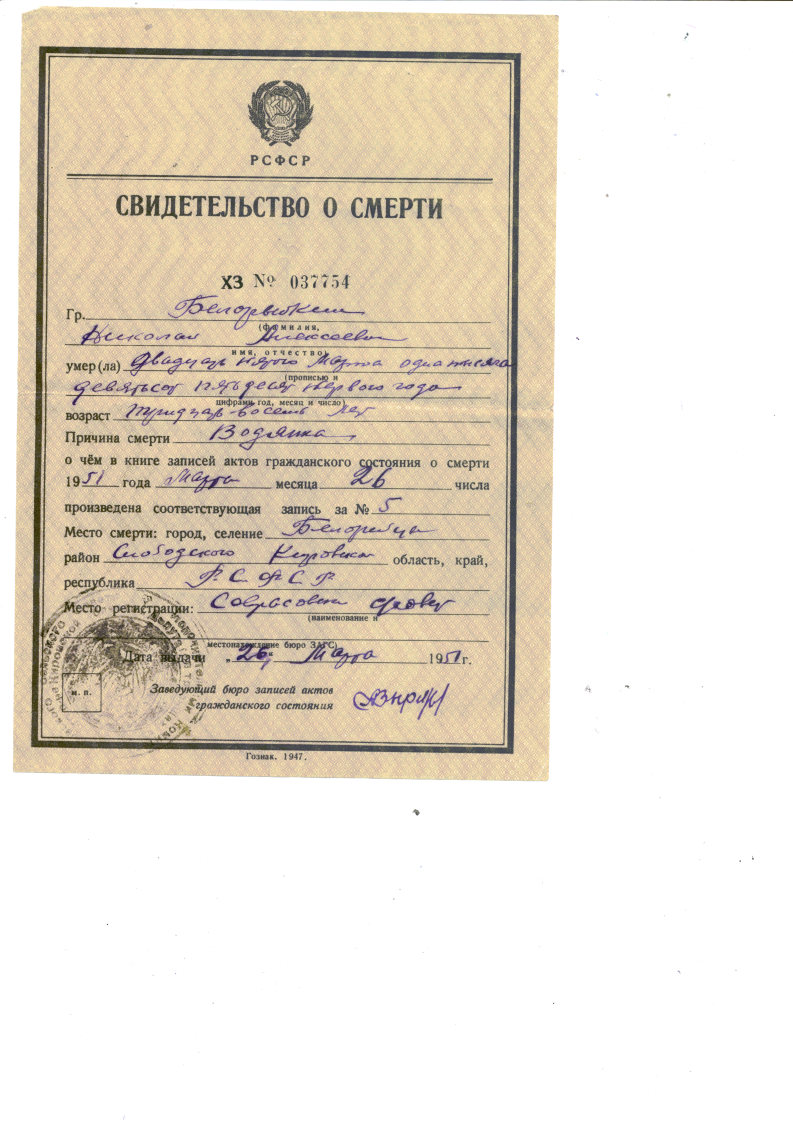 РСФСР
СВИДЕТЕЛЬСТВО О СМЕРТИ
ХЗ № 037754
Гр.
(фамилия,
Николай Алексеевич
имя, отчество)
умер(ла) двадцать пятого Марта одна тысяча
(прописью и
девятьсот пятьдесят первого года
цифрами год, месяц и число)
возраст тридцать-восемь лет
Причина смерти Водянка
о чём в книге записей актов гражданского состояния о смерти
1951 года Марта месяца 26 числа
произведена соответствующая запись за № 5
Место смерти: город, селение
район Слободского Кировская область, край,
республика Р.С.Ф.С.Р
Место регистрации:
(наименование и
местонахождение бюро ЗАГС)
Дата выдачи „26„ Марта 1951 г.
м. п.
Заведующий бюро записей актов
гражданского состояния
Гознак. 1947.